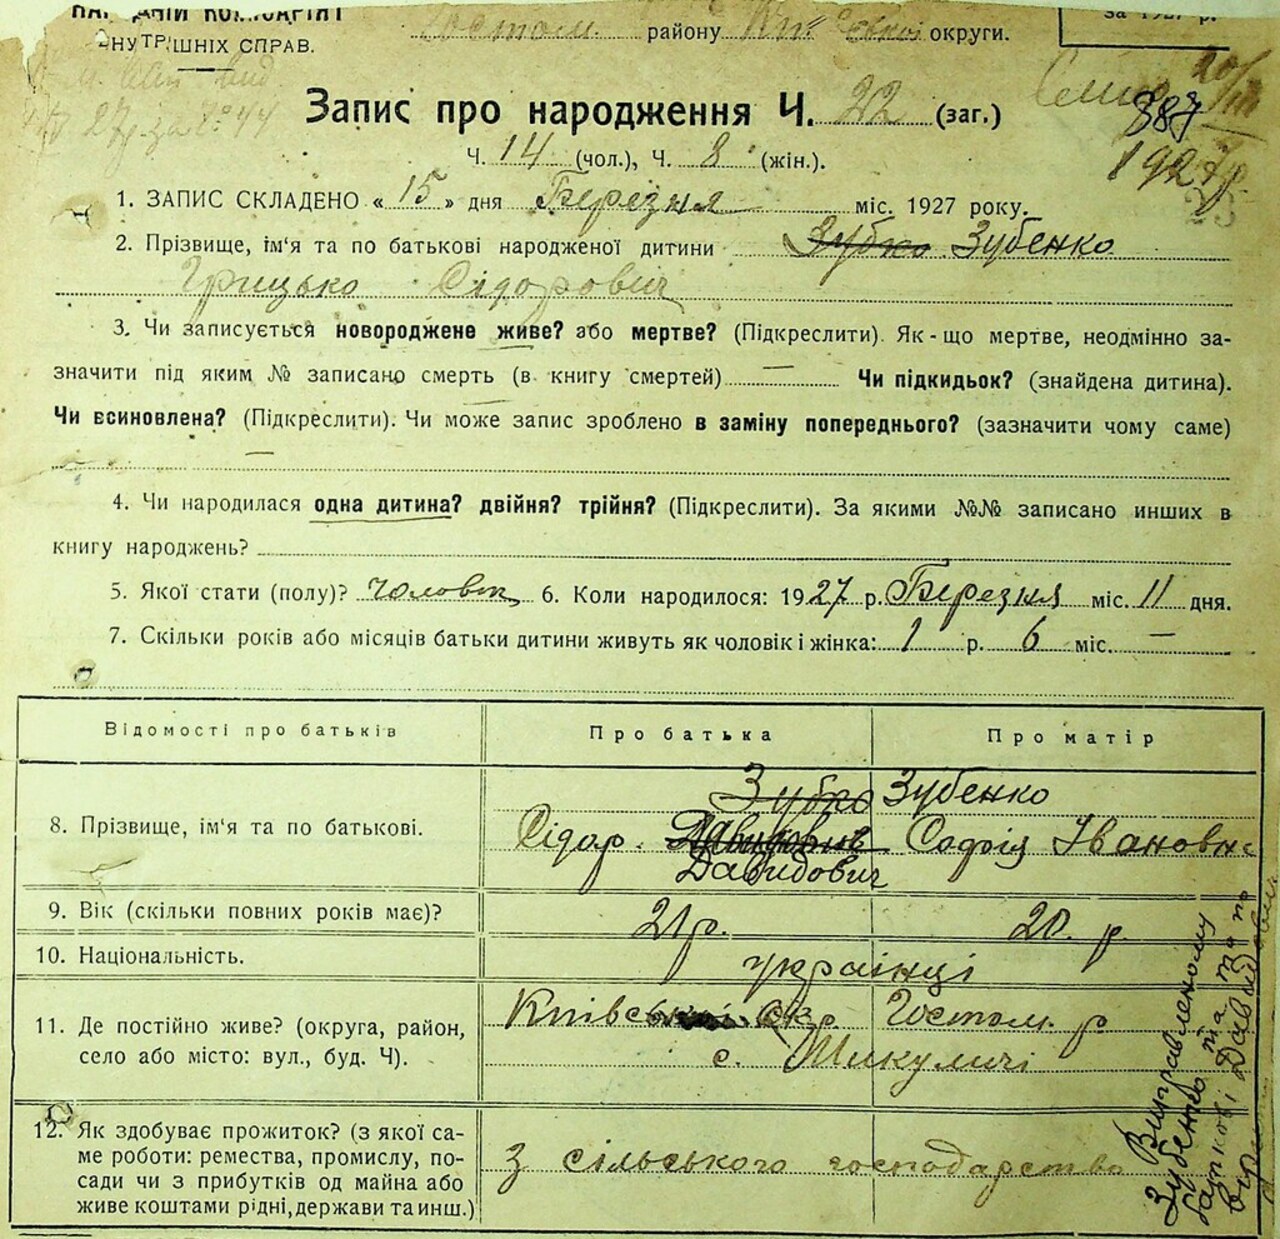 НАРОДНІЙ КОМІСАРІЯТ
ВНУТРІШНІХ СПРАВ.
Гостом. району Київської округи.
за 1927 р.
Запис про народження Ч. 22 (заг.)
387
1927 р.
Ч. 14 (чол.), Ч. 8 (жін.).
1. ЗАПИС СКЛАДЕНО « 15 » дня Березня міс. 1927 року.
2. Прізвище, ім‘я та по батькові народженої дитини Зубко Зубенко
Грицько Сідорович
3. Чи записується новороджене живе? або мертве? (Підкреслити). Як-що мертве, неодмінно за-
значити під яким № записано смерть (в книгу смертей) — Чи підкидьок? (знайдена дитина).
Чи всиновлена? (Підкреслити). Чи може запис зроблено в заміну попереднього? (зазначити чому саме)
—
4. Чи народилася одна дитина? двійня? трійня? (Підкреслити). За якими №№ записано инших в
книгу народжень?
5. Якої стати (полу)? чоловік 6. Коли народилося: 1927 р. Березня міс. 11 дня.
7. Скільки років або місяців батьки дитини живуть як чоловік і жінка: 1 р. 6 міс. —
Відомості про батьків Про батька Про матір
Зубко Зубенко
8. Прізвище, ім‘я та по батькові. Сідор Давидович Софія Івановна
Давидович
9. Вік (скільки повних років має)? 21 р. 20 р.
10. Національність. українці
11. Де постійно живе? (округа, район, Київської окр. Гостом. р
село або місто: вул., буд. Ч). с. Микуличі
12. Як здобуває прожиток? (з якої са-
ме роботи: ремества, промислу, по- З сільського господарства
сади чи з прибутків од майна або
живе коштами рідні, держави та инш.)
Виправленому
Зубенко та та по
батькові Давидович
вірити